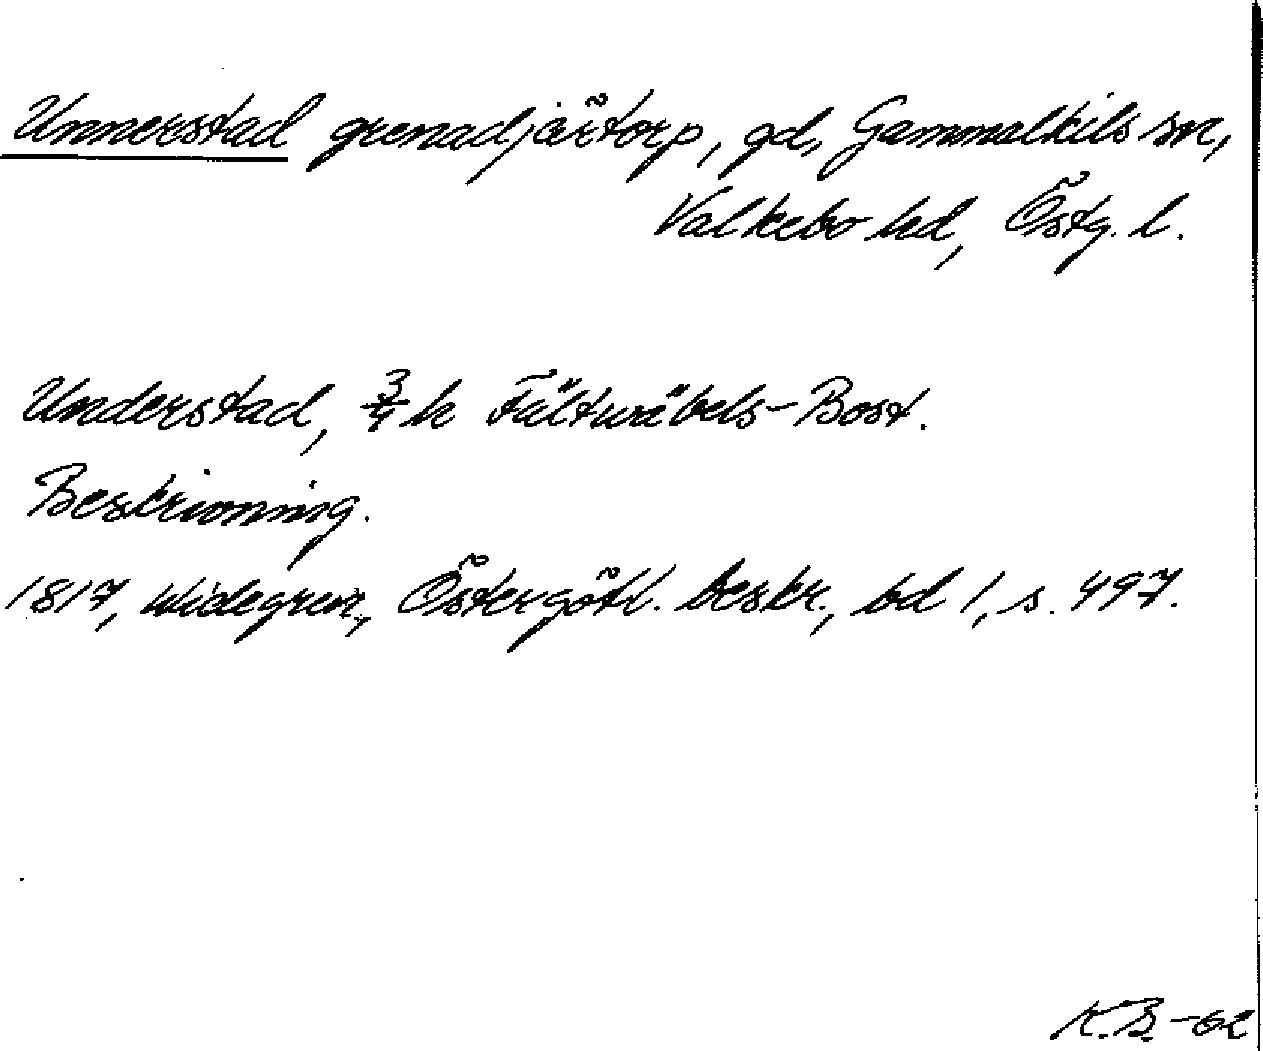 Unnerstad grenadjärtorp, gd, Gammalkils sn,
Valkebo hd, Östg. l.
Understad, 3/4 h Fältwäbels-Bost.
Beskrivning.
1817, Widegren, Östergötl. beskr., bd 1, s. 497.
K.B-62